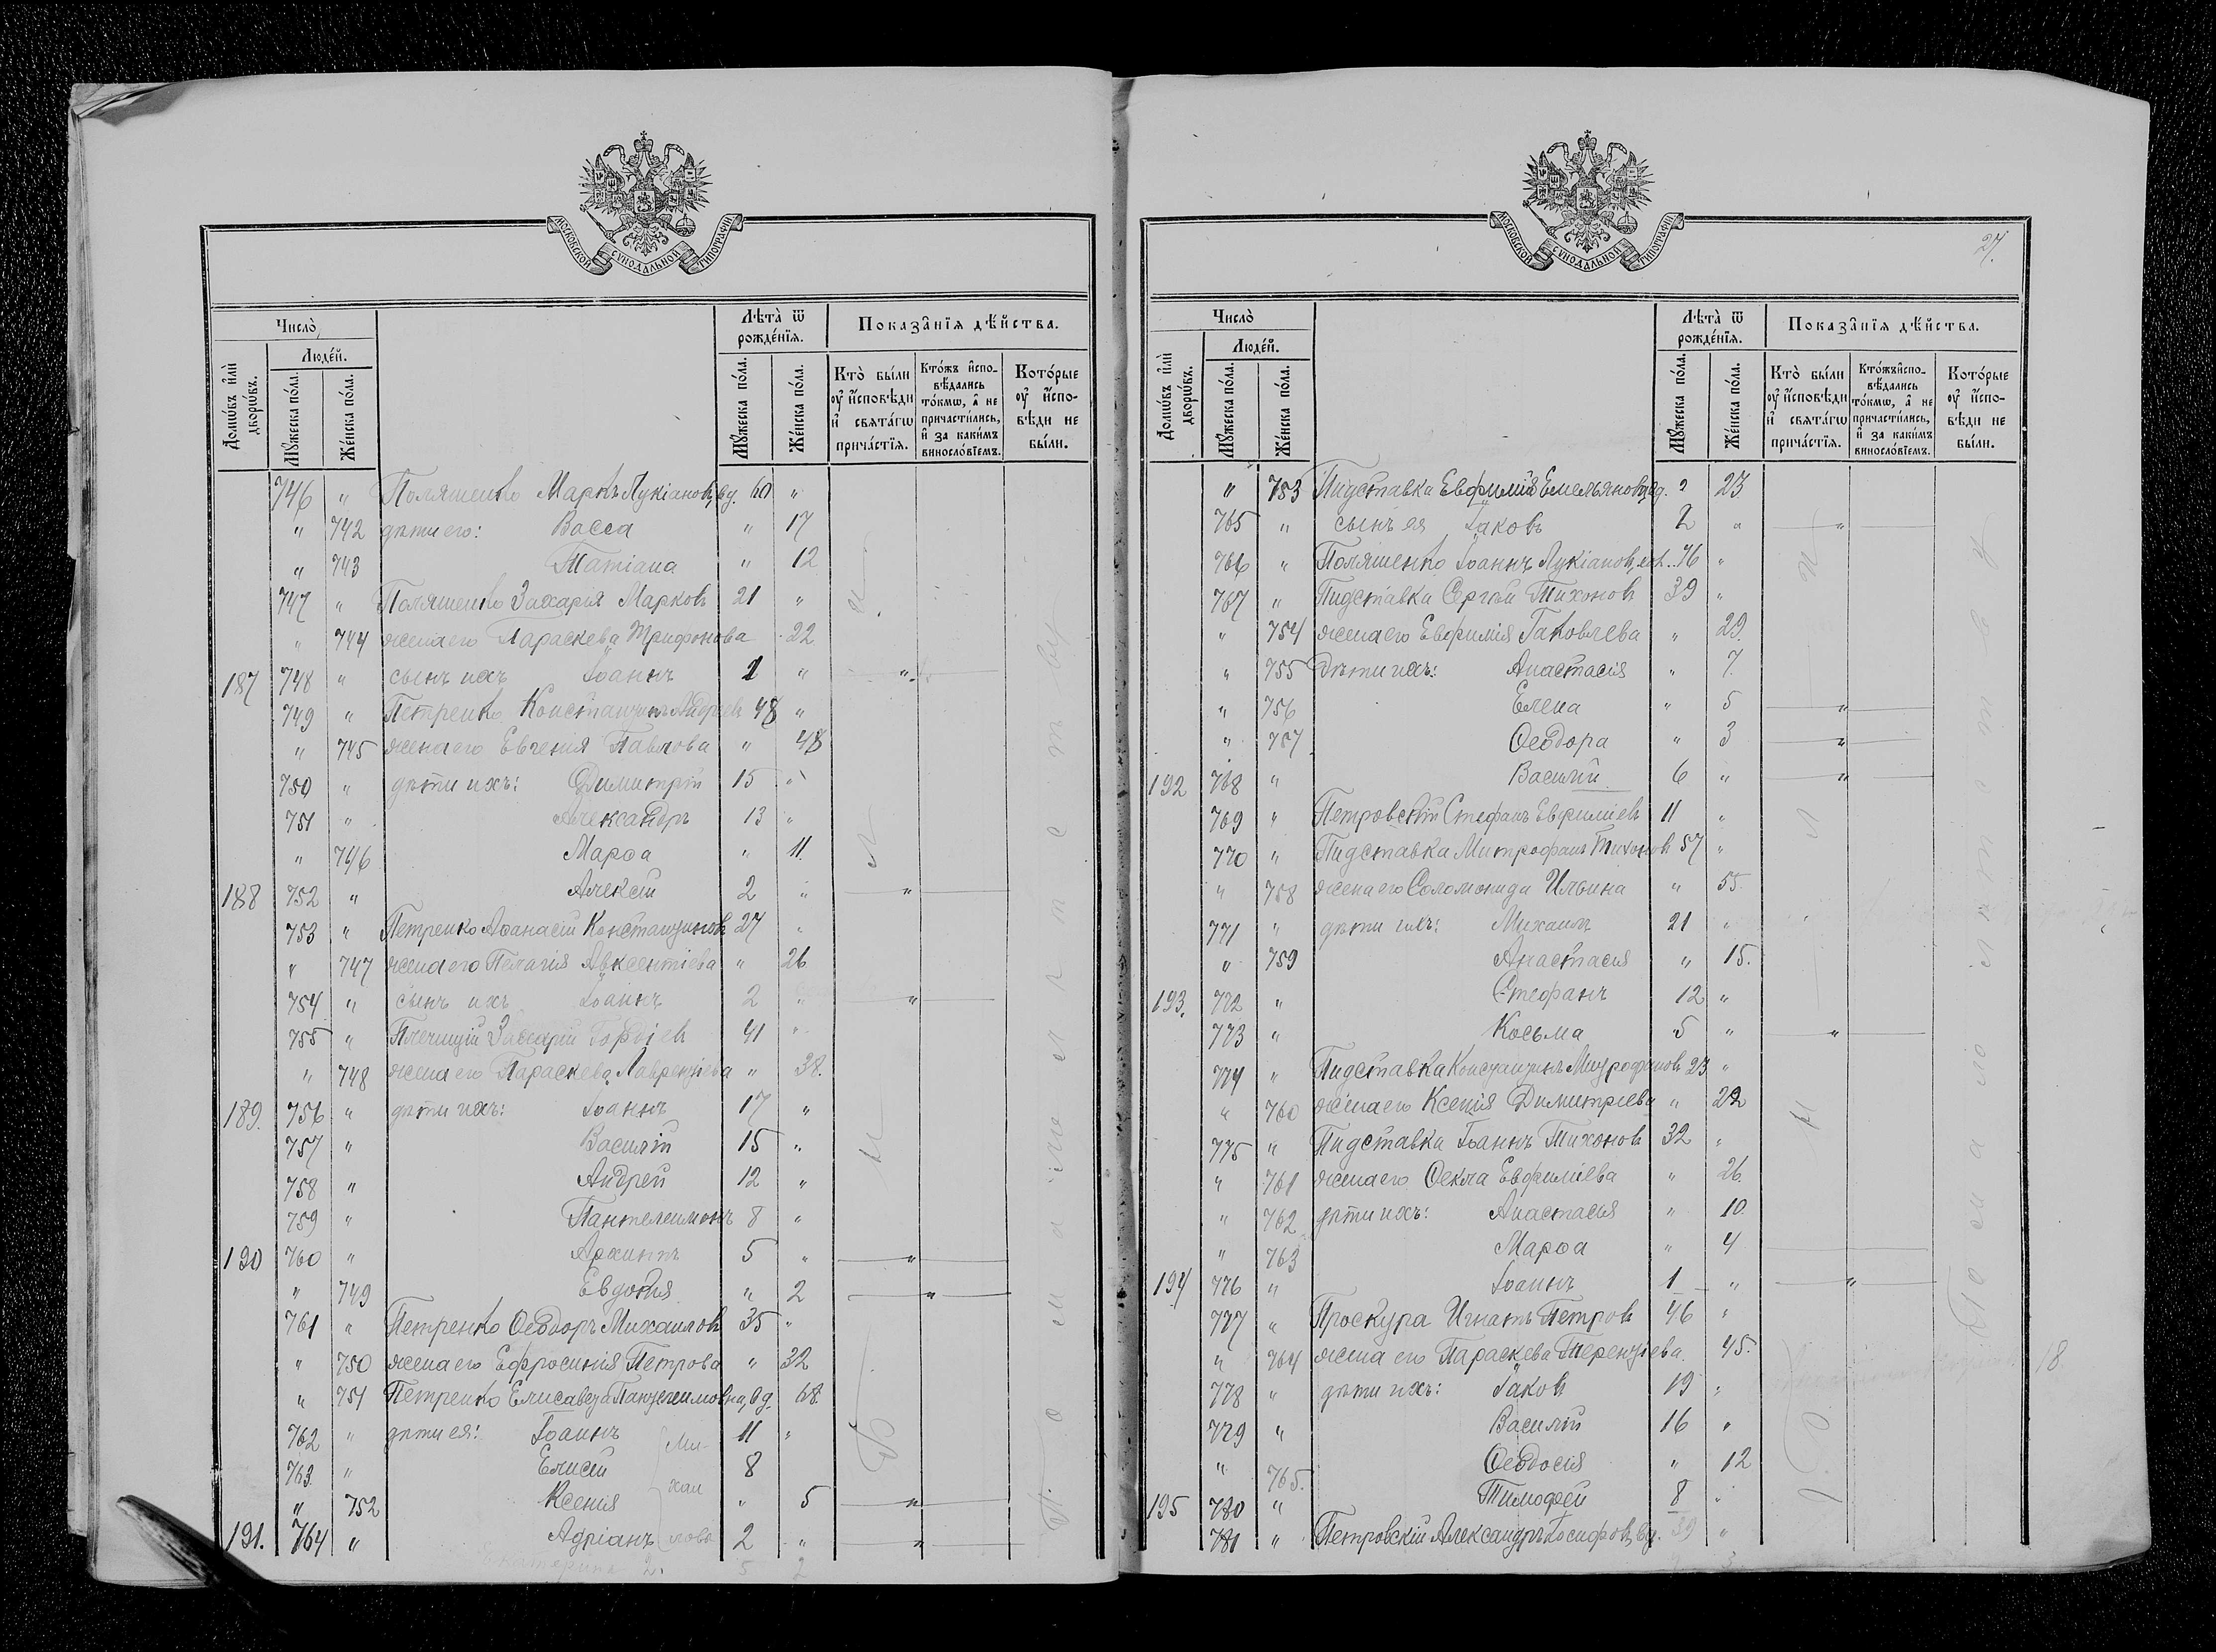 МОСКОВСКОЙ СУНОДАЛЬНОЙ ТИПОГРАФІИ
Число̀,
Людéй.
Лѣта̀ ѿ рождéнїѧ.
Показа̂нїѧ дѣ́йства.
Домѡ́въ и҆лѝ дворѡ́въ.
Мꙋ́жеска по́ла.
Же́нска по́ла.
Мꙋ́жеска по́ла.
Же́нска по́ла.
Кто̀ бы́ли ᲂу҆ и҆сповѣди и҆ свѧта́гѡ прича́стїѧ.
Кто́жъ и҆сповѣдались то́кмѡ, а҆ не причасти́лись, и҆ за каки́мъ винослѡ́вїемъ.
Кото́рые ᲂу҆ и҆сповѣди не бы́ли.
746 " Поляшенко Маркъ Лукіановъ, вд. 60 "
" 742 дѣти его: Васса " 17
" 743 Татіана " 12
747 " Поляшенко Захарья Марковъ 21 "
" 744 жена его Параскева Трифонова 22
187 748 " сынъ ихъ Іоаннъ 1 " "
749 " Петренко Константинъ Андреевъ 48 "
" 745 жена его Евгенія Павлова " 48
750 " дѣти ихъ: Димитрій 15 "
751 " Александръ 13 "
" 746 Марѳа " 11.
188 752 " Алексій 2 " "
753 " Петренко Аѳанасій Константиновъ 27 "
" 747 жена его Пелагія Авксентіева " 26
754 " сынъ ихъ Іоаннъ 2 " "
755 " Гордіевъ 41 "
" 748 жена его Параскева Лаврентіева " 38.
189. 756 " дѣти ихъ: Іоаннъ 17 "
757 " Василій 15 "
758 " Андрей 12 "
759 " Пантелеимонъ 8 "
190 760 " Архиппъ 5 " "
" 749 Евдокія " 2 "
761 " Петренко Ѳеодоръ Михаиловъ 35 "
" 750 жена его Ефросинія Петрова " 32
" 751 Петренко Елисавета Пантелеимовна, вд. 68.
762 " дѣти ея: Іоаннъ Ми- 11 "
763 " Елисей 8
" 752 Ксенія хаи " 5 "
191. 764 " Адріанъ лова 2 " "
По малолѣтству
МОСКОВСКОЙ СУНОДАЛЬНОЙ ТИПОГРАФІИ
27.
Число̀
Людéй.
Лѣта̀ ѿ рождéнїѧ.
Показа̂нїѧ дѣ́йства.
Домѡ́въ и҆лѝ дворѡ́въ.
Мꙋ́жеска по́ла.
Же́нска по́ла.
Мꙋ́жеска по́ла.
Же́нска по́ла.
Кто̀ бы́ли ᲂу҆ и҆сповѣди и҆ свѧта́гѡ прича́стїѧ.
Кто́жъ и҆сповѣдались то́кмѡ, а҆ не причасти́лись, и҆ за каки́мъ винослѡ́вїемъ.
Кото́рые ᲂу҆ и҆сповѣди не бы́ли.
" 753 Пидставка Евфимія Емельянова, вд. " 23
765 " сынъ ея Іаковъ 2 " "
766 " Поляшенко Іоаннъ Лукіановъ, 76 "
767 " Пидставка Сергій Тихоновъ 39 "
" 754 жена его Евфимія Іаковлева " 29.
" 755 дѣти ихъ: Анастасія " 7.
" 756 Елена " 5 "
" 757 Ѳеодора " 3 "
192 768 " Василій 6 " "
769 " Петровскій Стефанъ Евфиміевъ 11 "
770 " Пидставка Митрофанъ Тихоновъ 57 "
" 758 жена его Соломонида Ильина " 55
771 " дѣти ихъ: Михаилъ 21 "
" 759 Анастасія " 15.
193. 772 " Стефанъ 12 "
773 " Косьма 5 " "
774 " Пидставка Константинъ Митрофановъ 23 "
" 760 жена его Ксенія Димитріева " 22
775 " Пидставка Іоаннъ Тихоновъ 32 "
" 761 жена его Ѳекла Евфиміева " 26
" 762 дѣти ихъ: Анастасія " 10.
" 763 Марѳа " 4
194 776 " Іоаннъ 1 " "
777 " Проскура Игнатъ Петровъ 46 "
" 764 жена его Параскева Терентіева 45.
778 " дѣти ихъ: Іаковъ 19 "
779 " Василій 16 "
" 765. Ѳеодосія " 12
195 780 " Тимоѳей 8 "
781 " Петровскій Александръ Іосифовъ, вд. 39 "
По малолѣтству
18